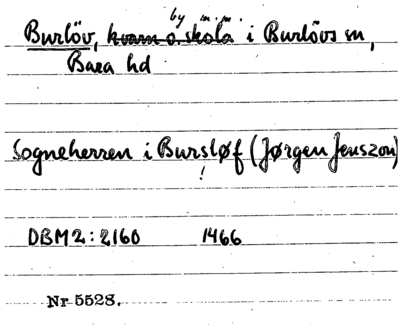 by m.m.
Burlöv, kvarn o. skola i Burlövs sn,
Bara hd
Sogneherren i Bursløf (Jørgen Jenszon)
!
DBM2: 2160 1466
Nr 5528.